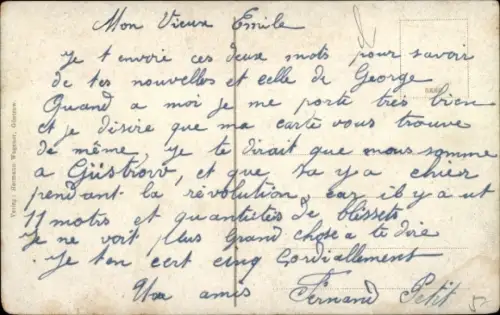 Mon Vieux Emile
Je t envoie ces deux mots pour savoir
de tes nouvelles et celle de George
Quand a moi je me porte très bien
et je désire que ma carte vous trouve
de même. Je te dirait que nous somme
a Güstrow, et que sa y a chier
pendant la révolution, car il y a ut
11 morts et quantietés de blissets
Je ne voit plus Grand chose a te dire
Je ten cert cinq Cordiallement
Un amis Fernand Petit
Verlag: Hermann Wagner, Güstrow.